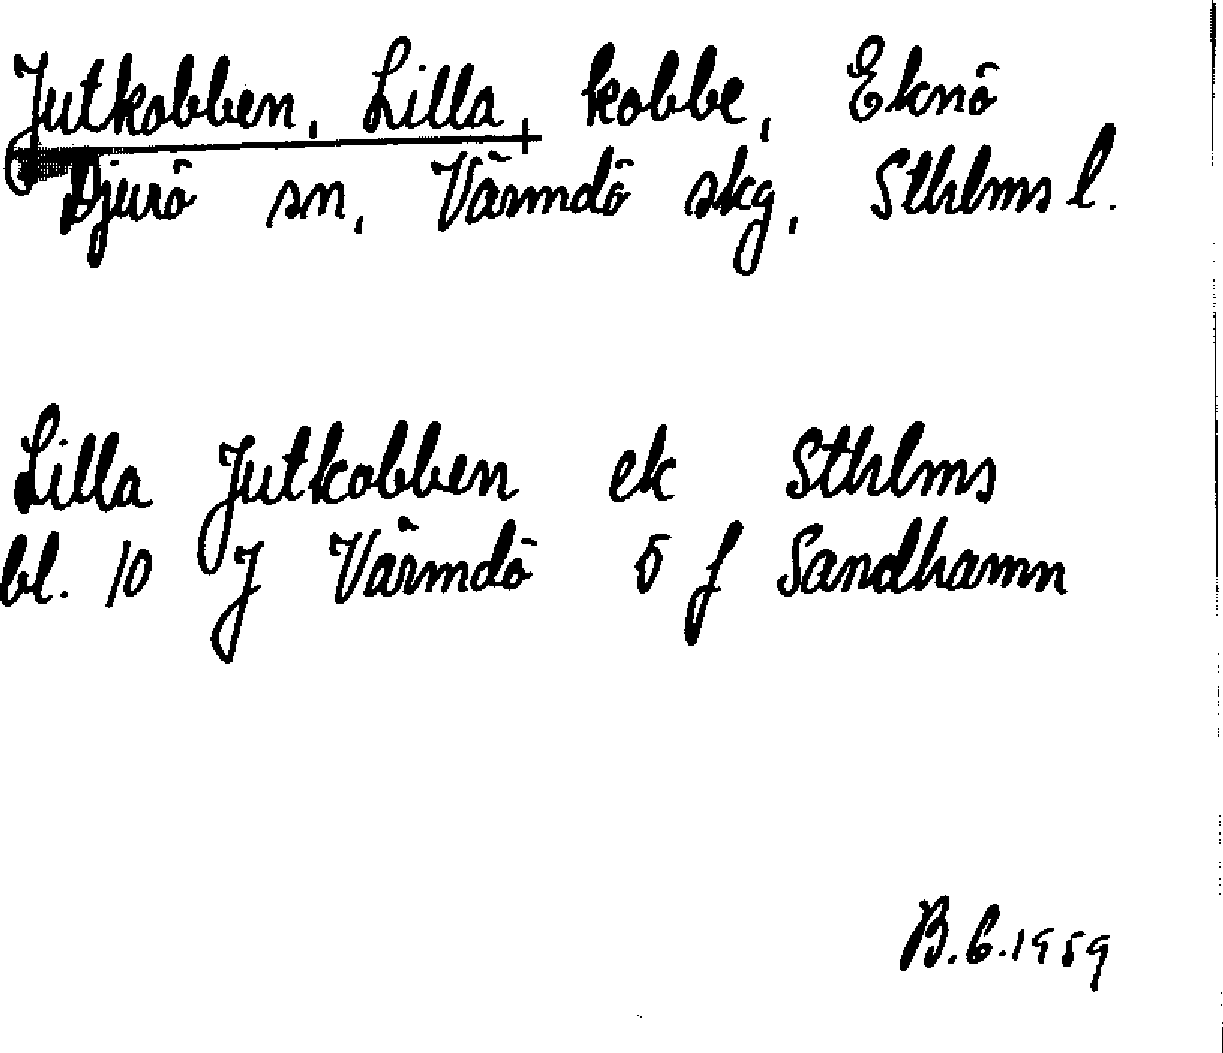 Jutkobben, Lilla, kobbe, Eknö
Djurö sn, Värmdö skg, Sthlms l.
Lilla Jutkobben ek Sthlms
bl. 10 J Värmdö 5 f Sandhamn
B.G.1959